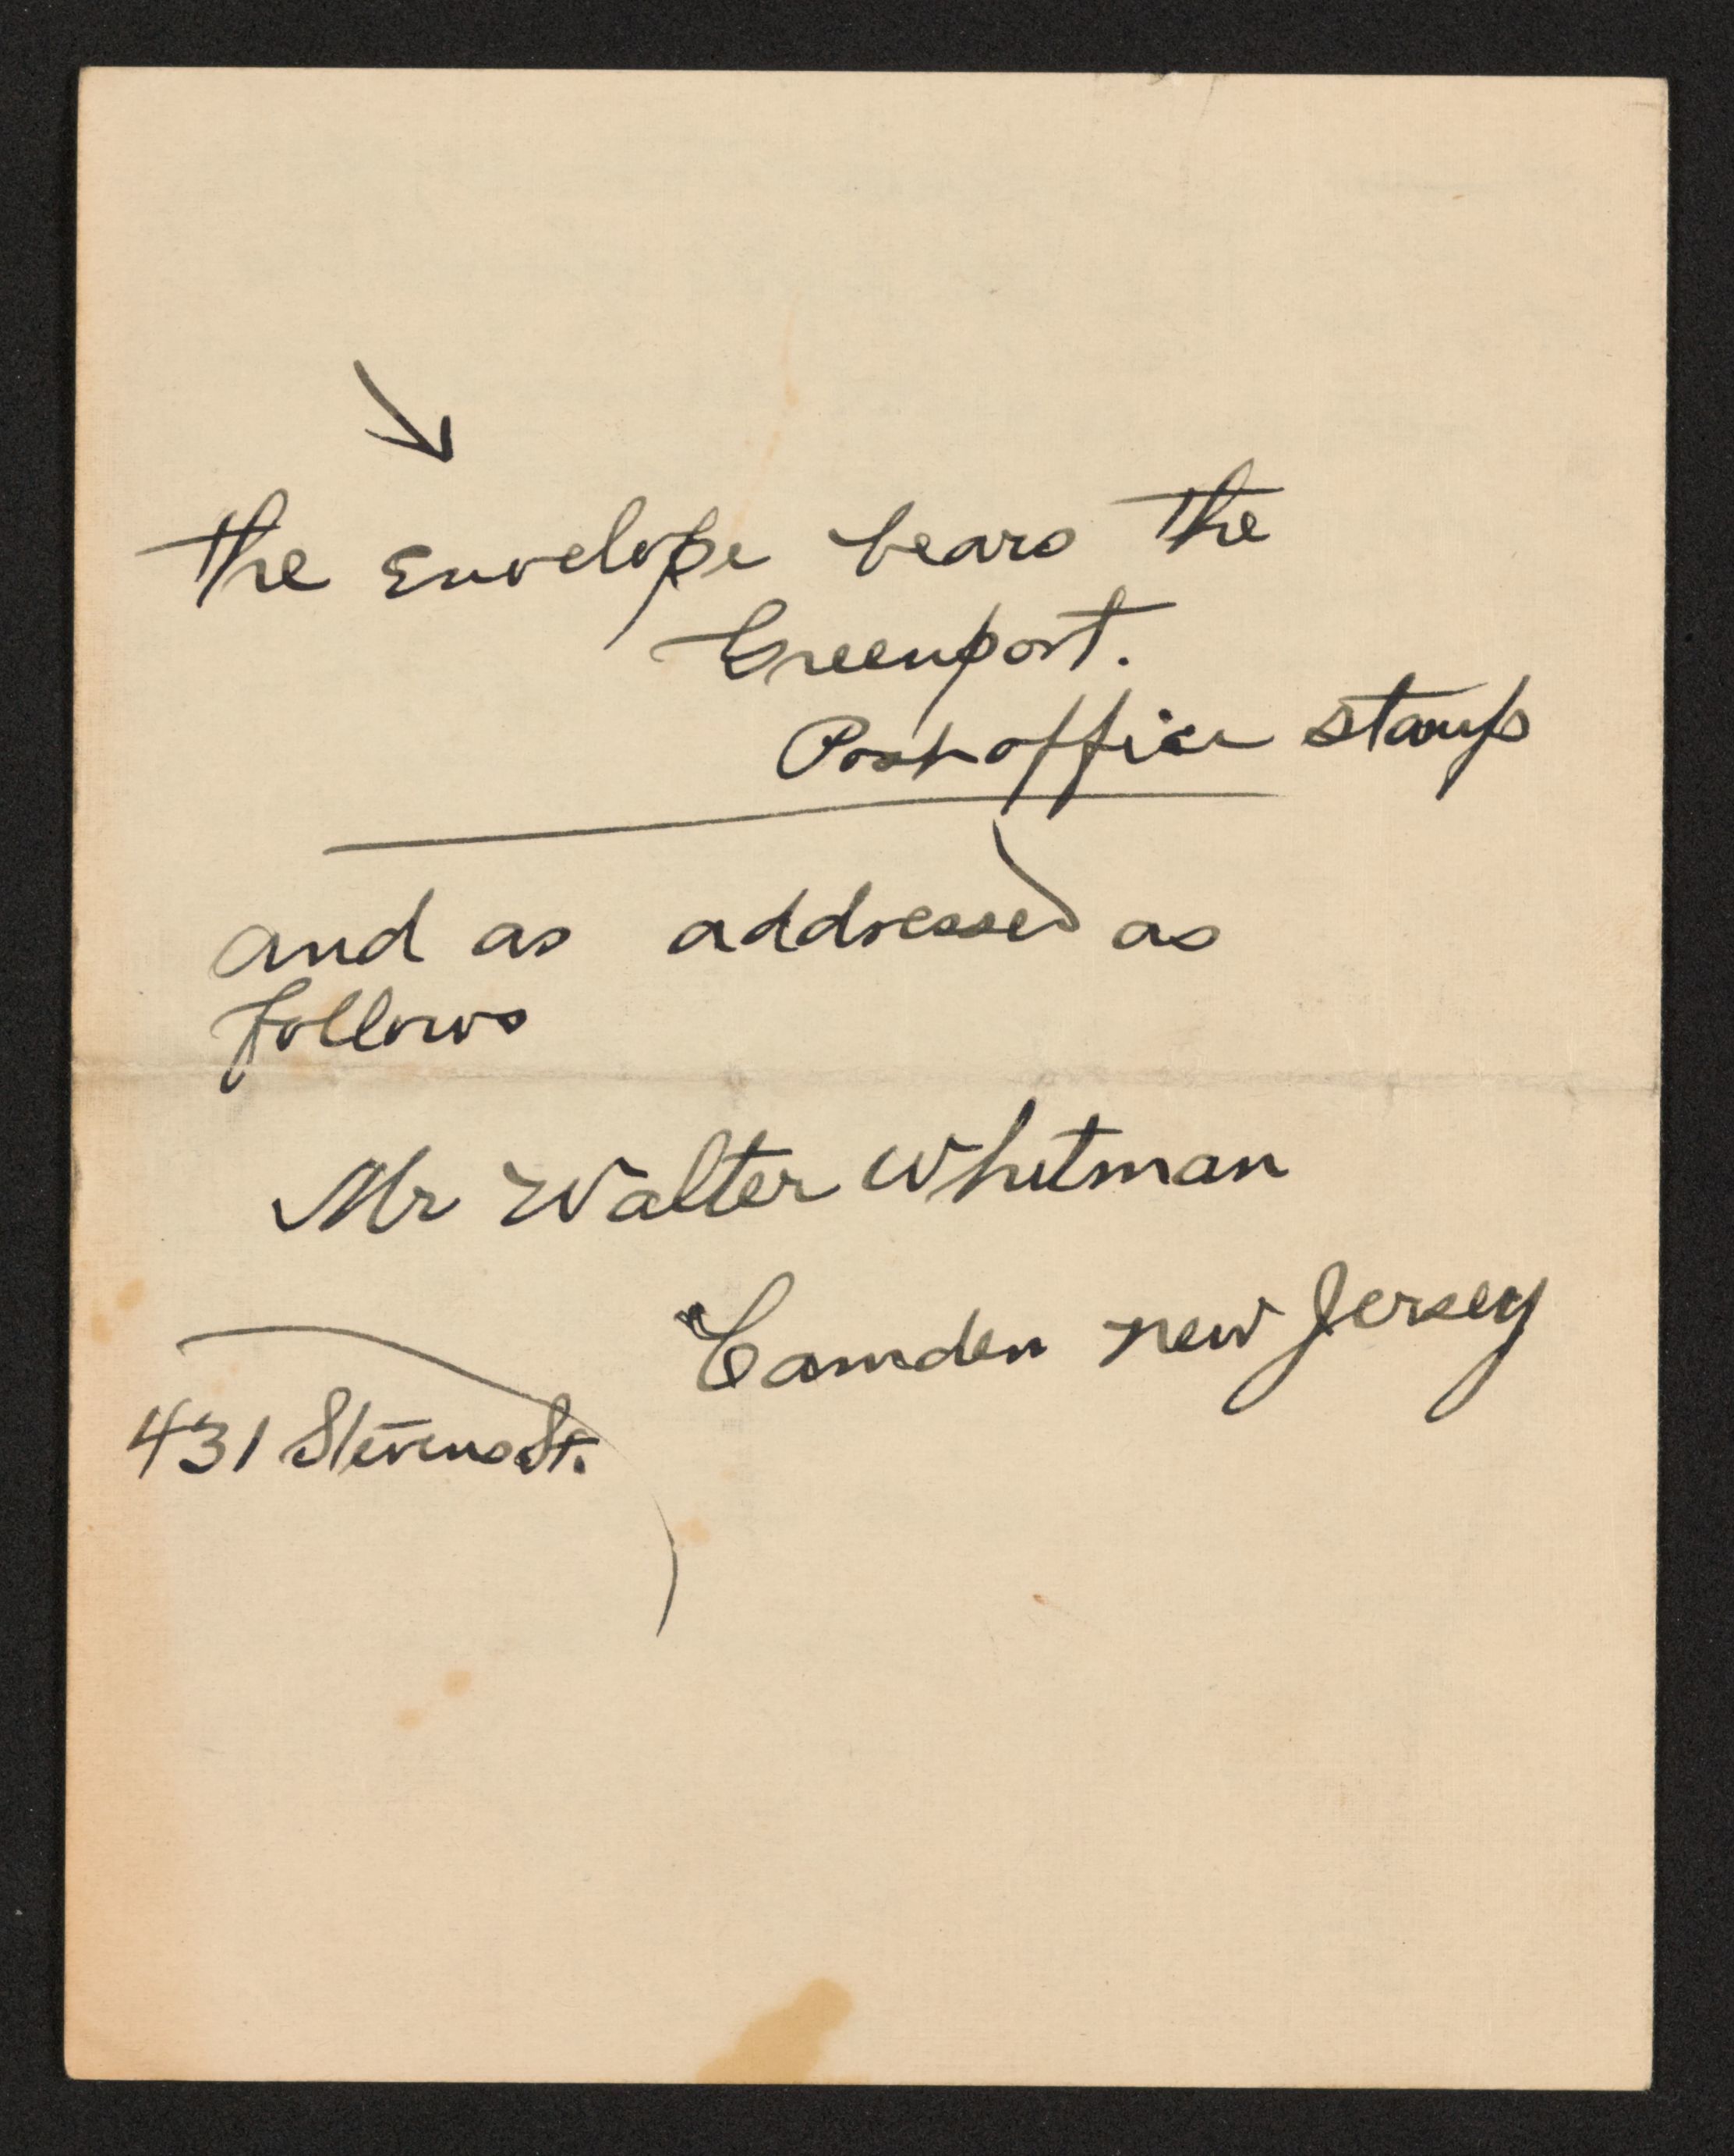 the Envelope bears the
Greenport.
Post office stamp
and as addressed as
follows
Mr Walter Whitman
Camden new Jersey
431 Stevens St.